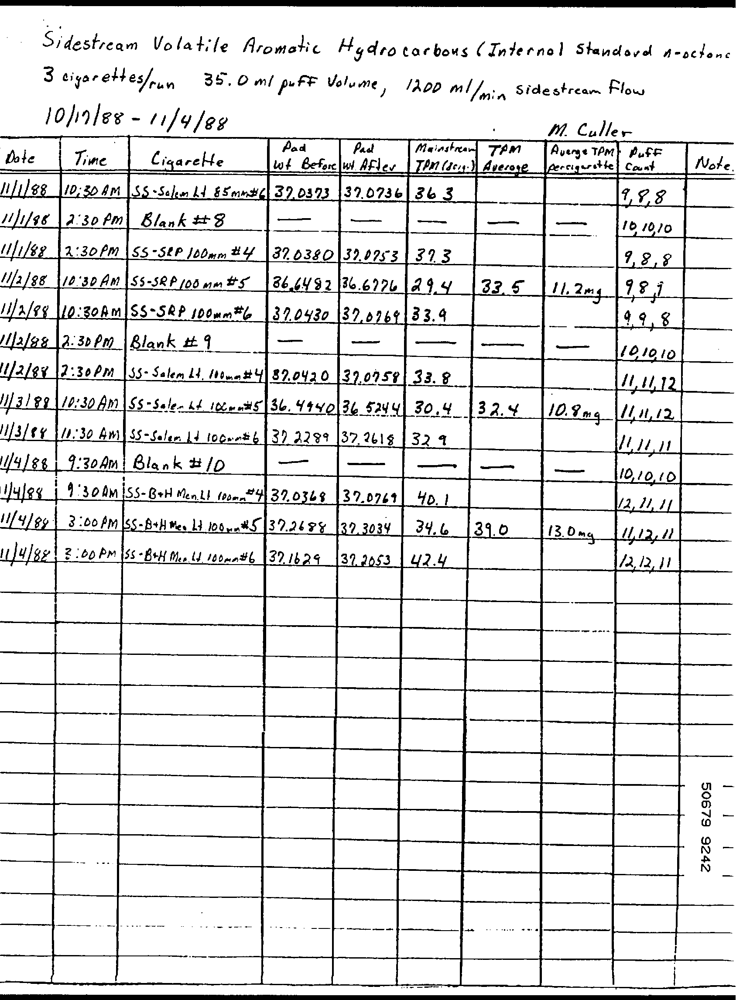 Sidestream Volatile Aromatic Hydrocarbons (Internal Standard n-octane
3 cigarettes/run 35.0 ml puff Volume, 1200 ml/min sidestream Flow
10/17/88 - 11/4/88
M. Culler
Date Time Cigarette Pad wt Before Pad wt After Mainstream TPM (3cig.) TPM Average Average TPM per cigarette Puff Count Note
11/1/88 10:30 AM SS-Salem Lt 85mm#6 37.0373 37.0736 36.3 9,8,8
11/1/88 2:30 PM Blank #8 — — — — — 10,10,10
11/1/88 2:30 PM SS-SRP 100mm #4 37.0380 37.0753 37.3 9,8,8
11/2/88 10:30 AM SS-SRP 100 mm #5 36.6482 36.6776 29.4 33.5 11.2mg 9,8,9
11/2/88 10:30AM SS-SRP 100mm#6 37.0430 37.0769 33.9 9,9,8
11/2/88 2:30PM Blank #9 — — — — — 10,10,10
11/2/88 2:30PM SS-Salem Lt. 100mm#4 37.0420 37.0758 33.8 11,11,12
11/3/88 10:30AM SS-Salem Lt 100mm#5 36.4940 36.5244 30.4 32.4 10.8mg 11,11,12
11/3/88 10:30 AM SS-Salem Lt 100mm#6 37.2289 37.2618 32.9 11,11,11
11/4/88 9:30AM Blank #10 — — — — — 10,10,10
11/4/88 9:30AM SS-B+H Men.Lt 100mm#4 37.0368 37.0769 40.1 12,11,11
11/4/88 3:00PM SS-B+H Men. Lt 100mm#5 37.2688 37.3034 34.6 39.0 13.0mg 11,12,11
11/4/88 3:00 PM SS-B+H Men. Lt. 100mm#6 37.1629 37.2053 42.4 12,12,11
50679 9242